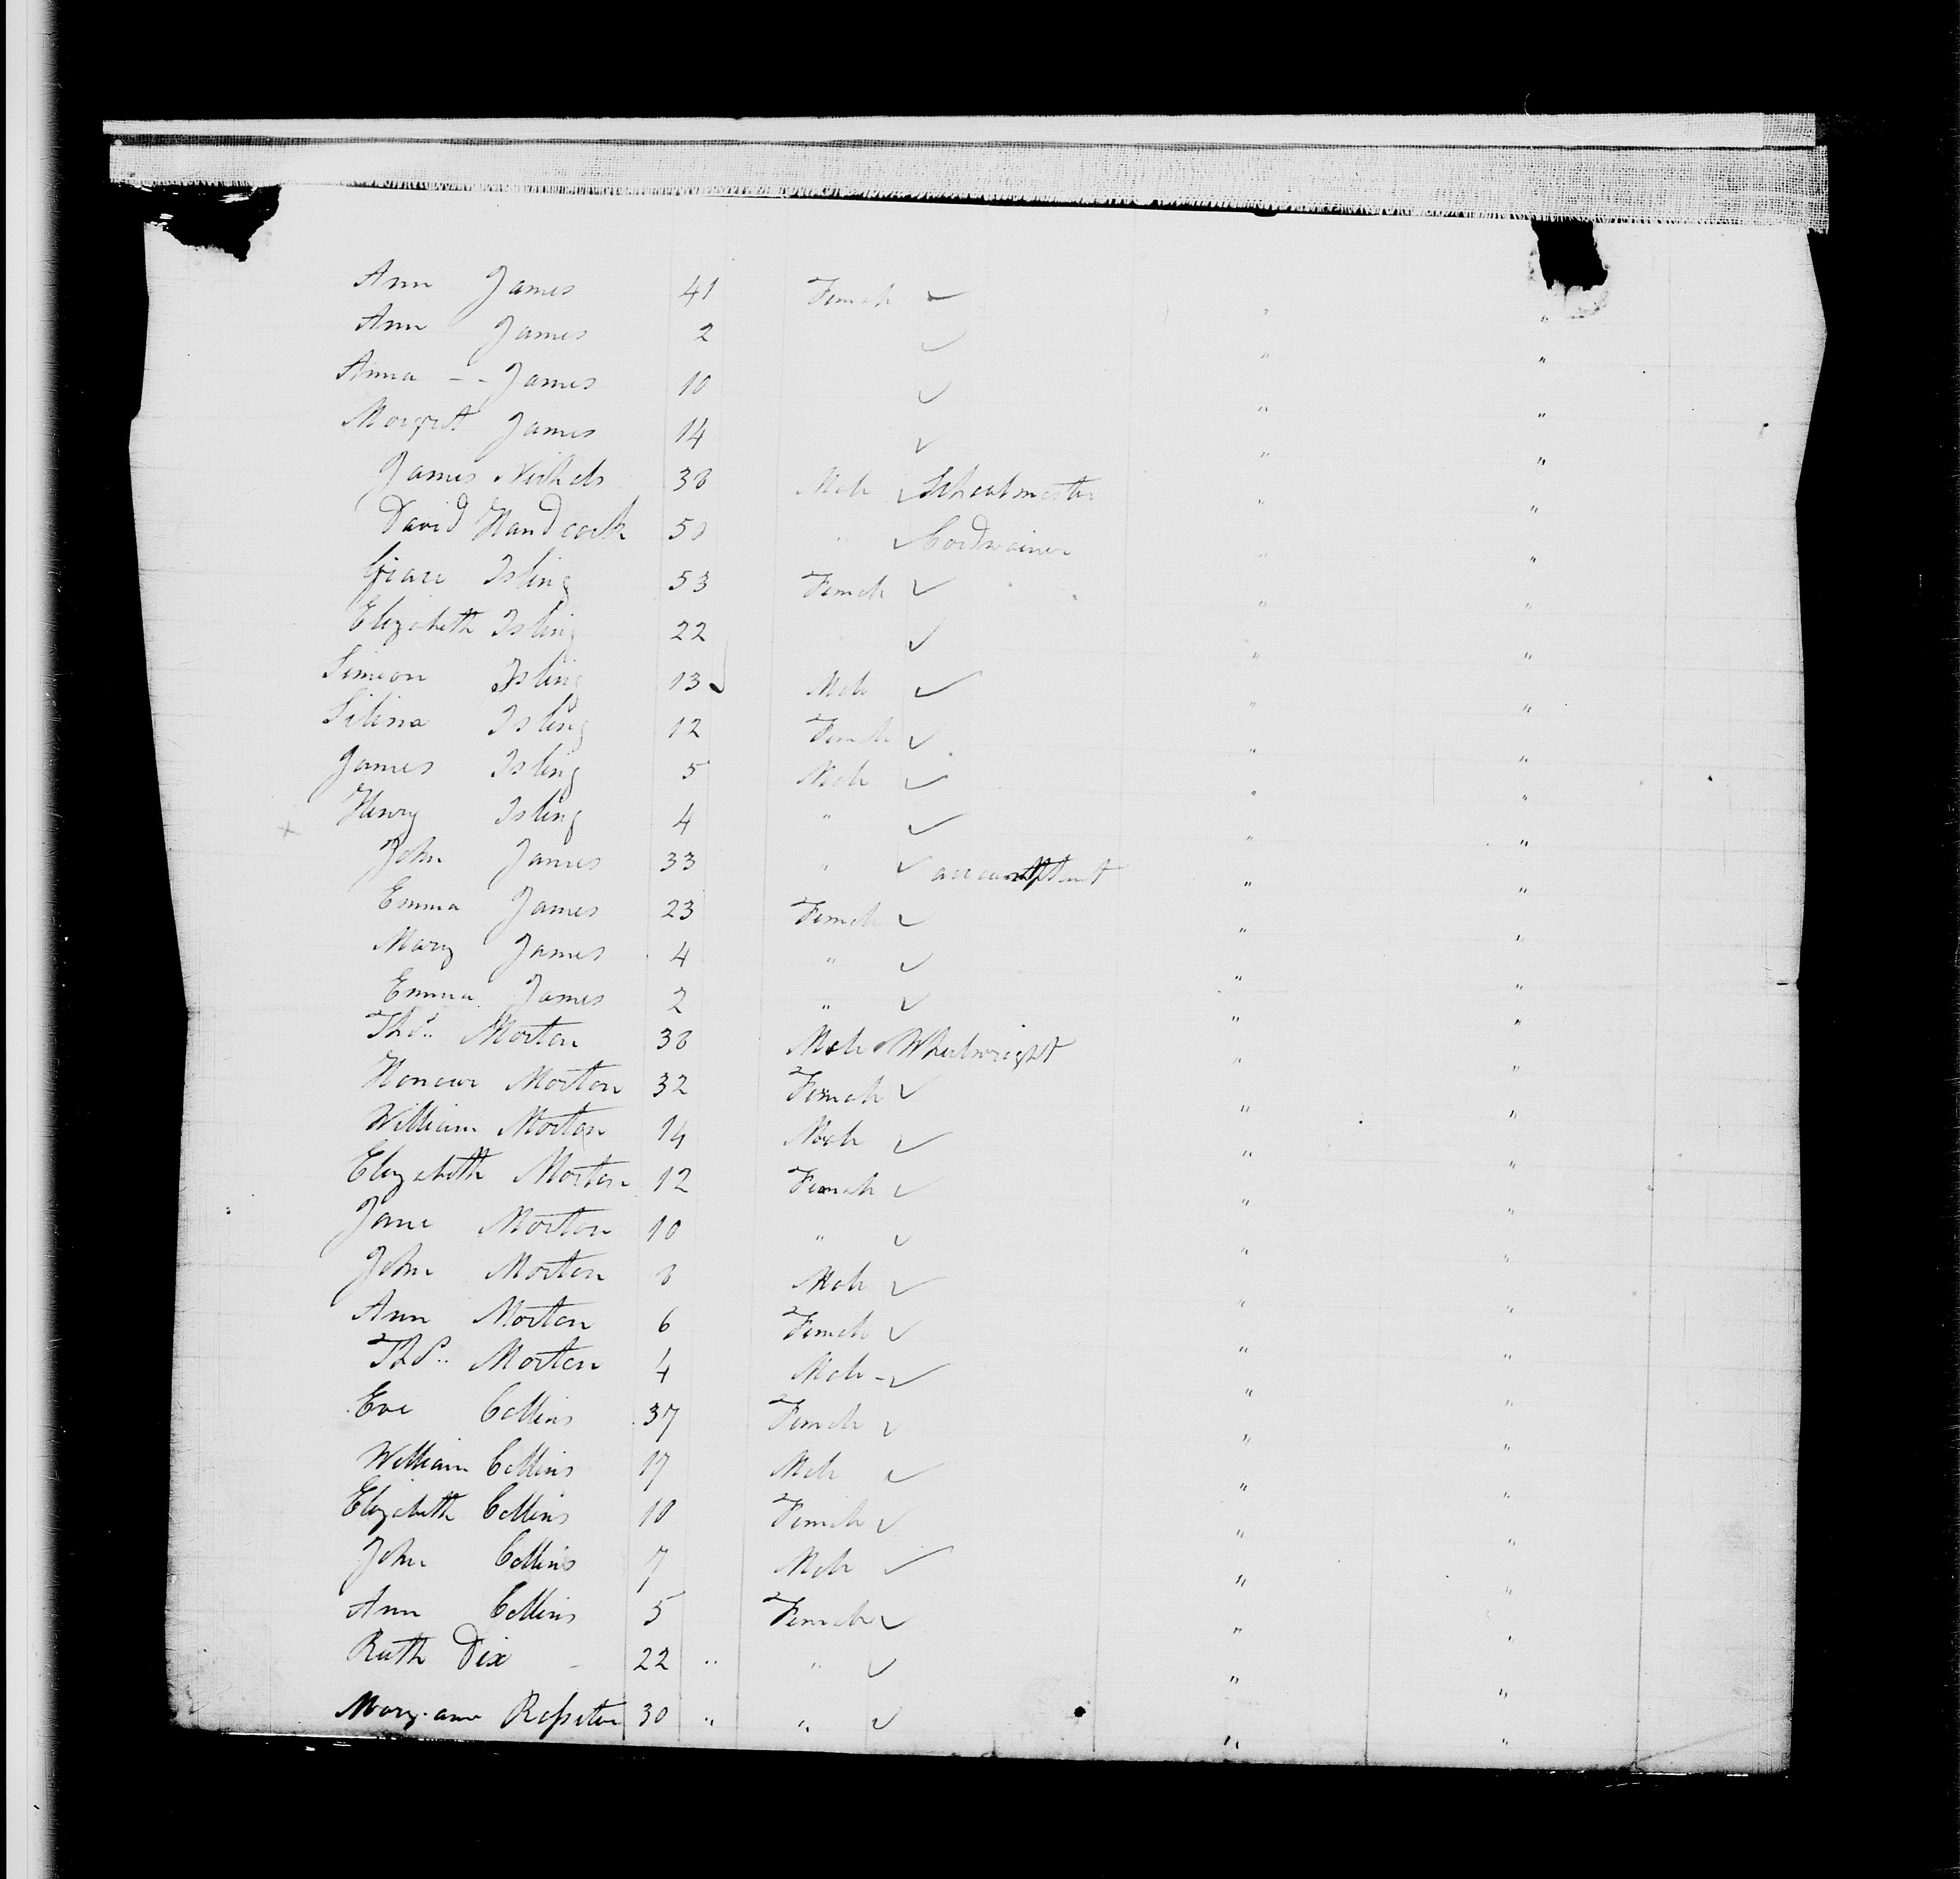 Ann James 41 Female ✓ " "
Ann James 2 ✓ " "
Anna - - James 10 ✓ " "
Margret James 14 ✓ " "
James Nichols 38 Male ✓ Schoolmaster " "
David Handcock 50 " ✓ Cordwainer " "
Grace Isling 53 Female ✓ " "
Elizabeth Isling 22 ✓ " "
Simeon Isling 13 Male ✓ " "
Silina Isling 12 Female ✓ " "
James Isling 5 Male ✓ " "
Henry Isling 4 " ✓ " "
John James 33 " ✓ accountant " "
Emma James 23 Female ✓ " "
Mary James 4 " ✓ " "
Emma James 2 " ✓ " "
Thos. Morton 38 Male Wheelwright " "
Honour Morton 32 Female ✓ " "
William Morton 14 Male ✓ " "
Elizabeth Morton 12 Female ✓ " "
Jane Morton 10 " ✓ " "
John Morton 8 Male ✓ " "
Ann Morton 6 Female ✓ " "
Thos. Morton 4 Male - ✓ " "
Eve Collins 37 Female ✓ " "
William Collins 17 Male ✓ " "
Elizabeth Collins 10 Female ✓ " "
John Collins 7 Male ✓ " "
Ann Collins 5 Female ✓ " "
Ruth Dix - 22 " " ✓ " "
Mary ann Rossiter 30 " " ✓ " "